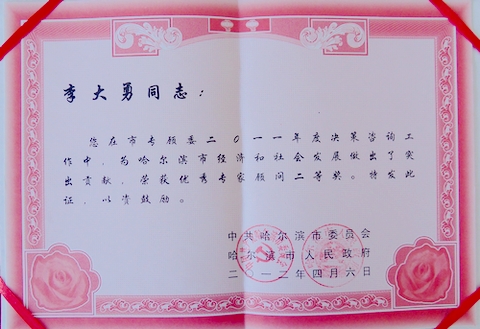 李大勇同志：
您在市专顾委二〇一一年度决策咨询工
作中，为哈尔滨市经济和社会发展做出了突
出贡献，荣获优秀专家顾问二等奖。特发此
证，以资鼓励。
中共哈尔滨市委员会
哈尔滨市人民政府
二〇一二年四月六日